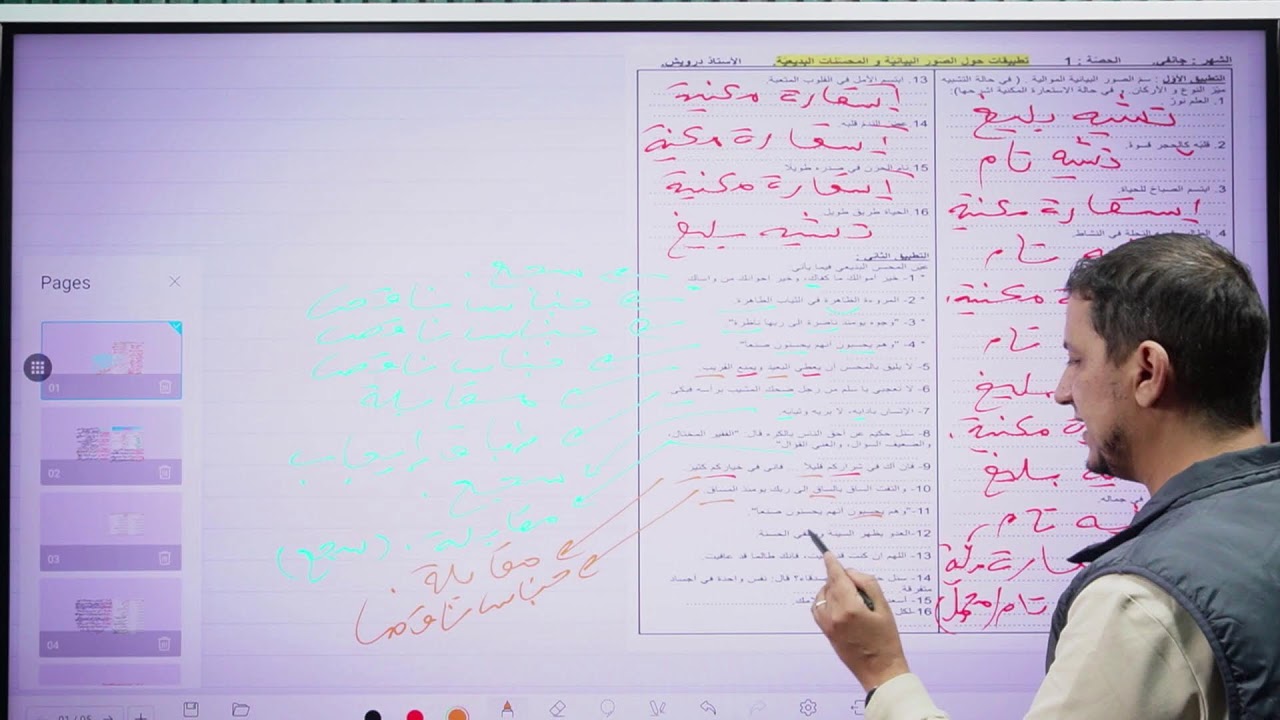 الشهر : جانفي. الحصة : 1 تطبيقات حول الصور البيانية و المحسنات البديعية. الأستاذ درويش.
التطبيق الأول : سم الصور البيانية الموالية. ( في حالة التشبيه
ميّز النوع و الأركان. في حالة الاستعارة المكنية اشرحها):
1. العلم نورٌ
تشبيه بليغ
2. قلبه كالحجر قسوة.
تشبيه تام
3. ابتسم الصباح للحياة.
إستعارة مكنية
4. النحلة في النشاط.
تام
مكنية.
تام
بليغ
مكنية.
بليغ
في جماله.
تام
تام (مجمل)
13. ابتسم الأمل في القلوب المتعبة.
إستعارة مكنية
14. الندم قلبه.
إستعارة مكنية
15. نام الحزن في صدره طويلا.
إستعارة مكنية
16. الحياة طريق طويل.
تشبيه بليغ
التطبيق الثاني :
عيّن المحسن البديعي فيما يأتي:
1- خير أموالك ما كفاك، وخير إخوانك من واساك "
سجع.
2- المروءة الطاهرة في الثياب الطاهرة.
جناس ناقص
3- "وجوه يومئذ ناضرة إلى ربها ناظرة"
جناس ناقص
4- "وهم يحسبون أنهم يحسنون صنعا"
جناس ناقص
5- لا يليق بالمحسن أن يعطي البعيد ويمنع القريب
مقابلة
6- لا تعجبي يا سلم من رجل ضحك المشيب برأسه فبكى
طباق إيجاب
7- الإنسان بآدابه، لا بزيه وثيابه.
سجع.
8- سئل حكيم عن أحق الناس بالكره قال: "الفقير المختال،
والضعيف السؤال، والغني القوال"
مقابلة. (سجع)
9- فإن أك في شراركم قليلا ... فإني في خياركم كثير
مقابلة.
10- والتفت الساق بالساق إلى ربك يومئذ المساق.
جناس ناقص
11-"وهم يحسبون أنهم يحسنون صنعا"
12-العدو يظهر السيئة الحسنة
13- اللهم إن كنت قد فإنك طالما قد عافيت.
14- سئل قال: نفس واحدة في أجساد
متفرقة.
15-
16-
Pages
01
02
03
04
01 / 05